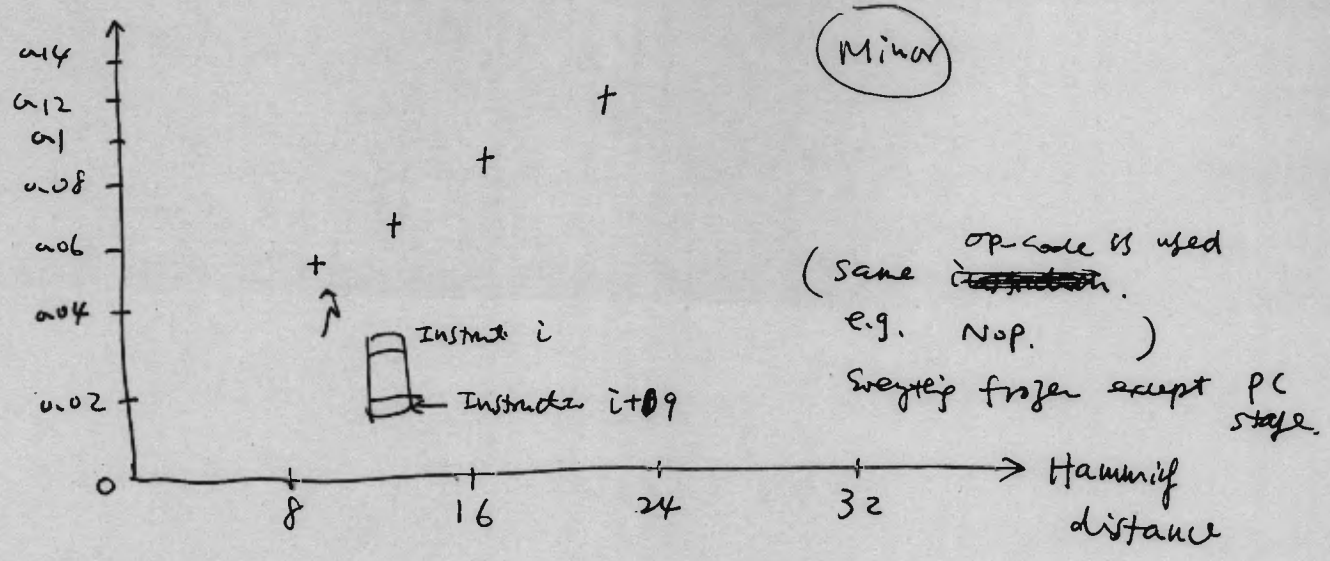 Minor
0.14
0.12
0.1
0.08
0.06
0.04
0.02
0
8
16
24
32
Hammig
distance
Instruct i
Instructn i+9
op-code is used
(same .
e.g. NOP. )
Everything frozen except PC
stage.